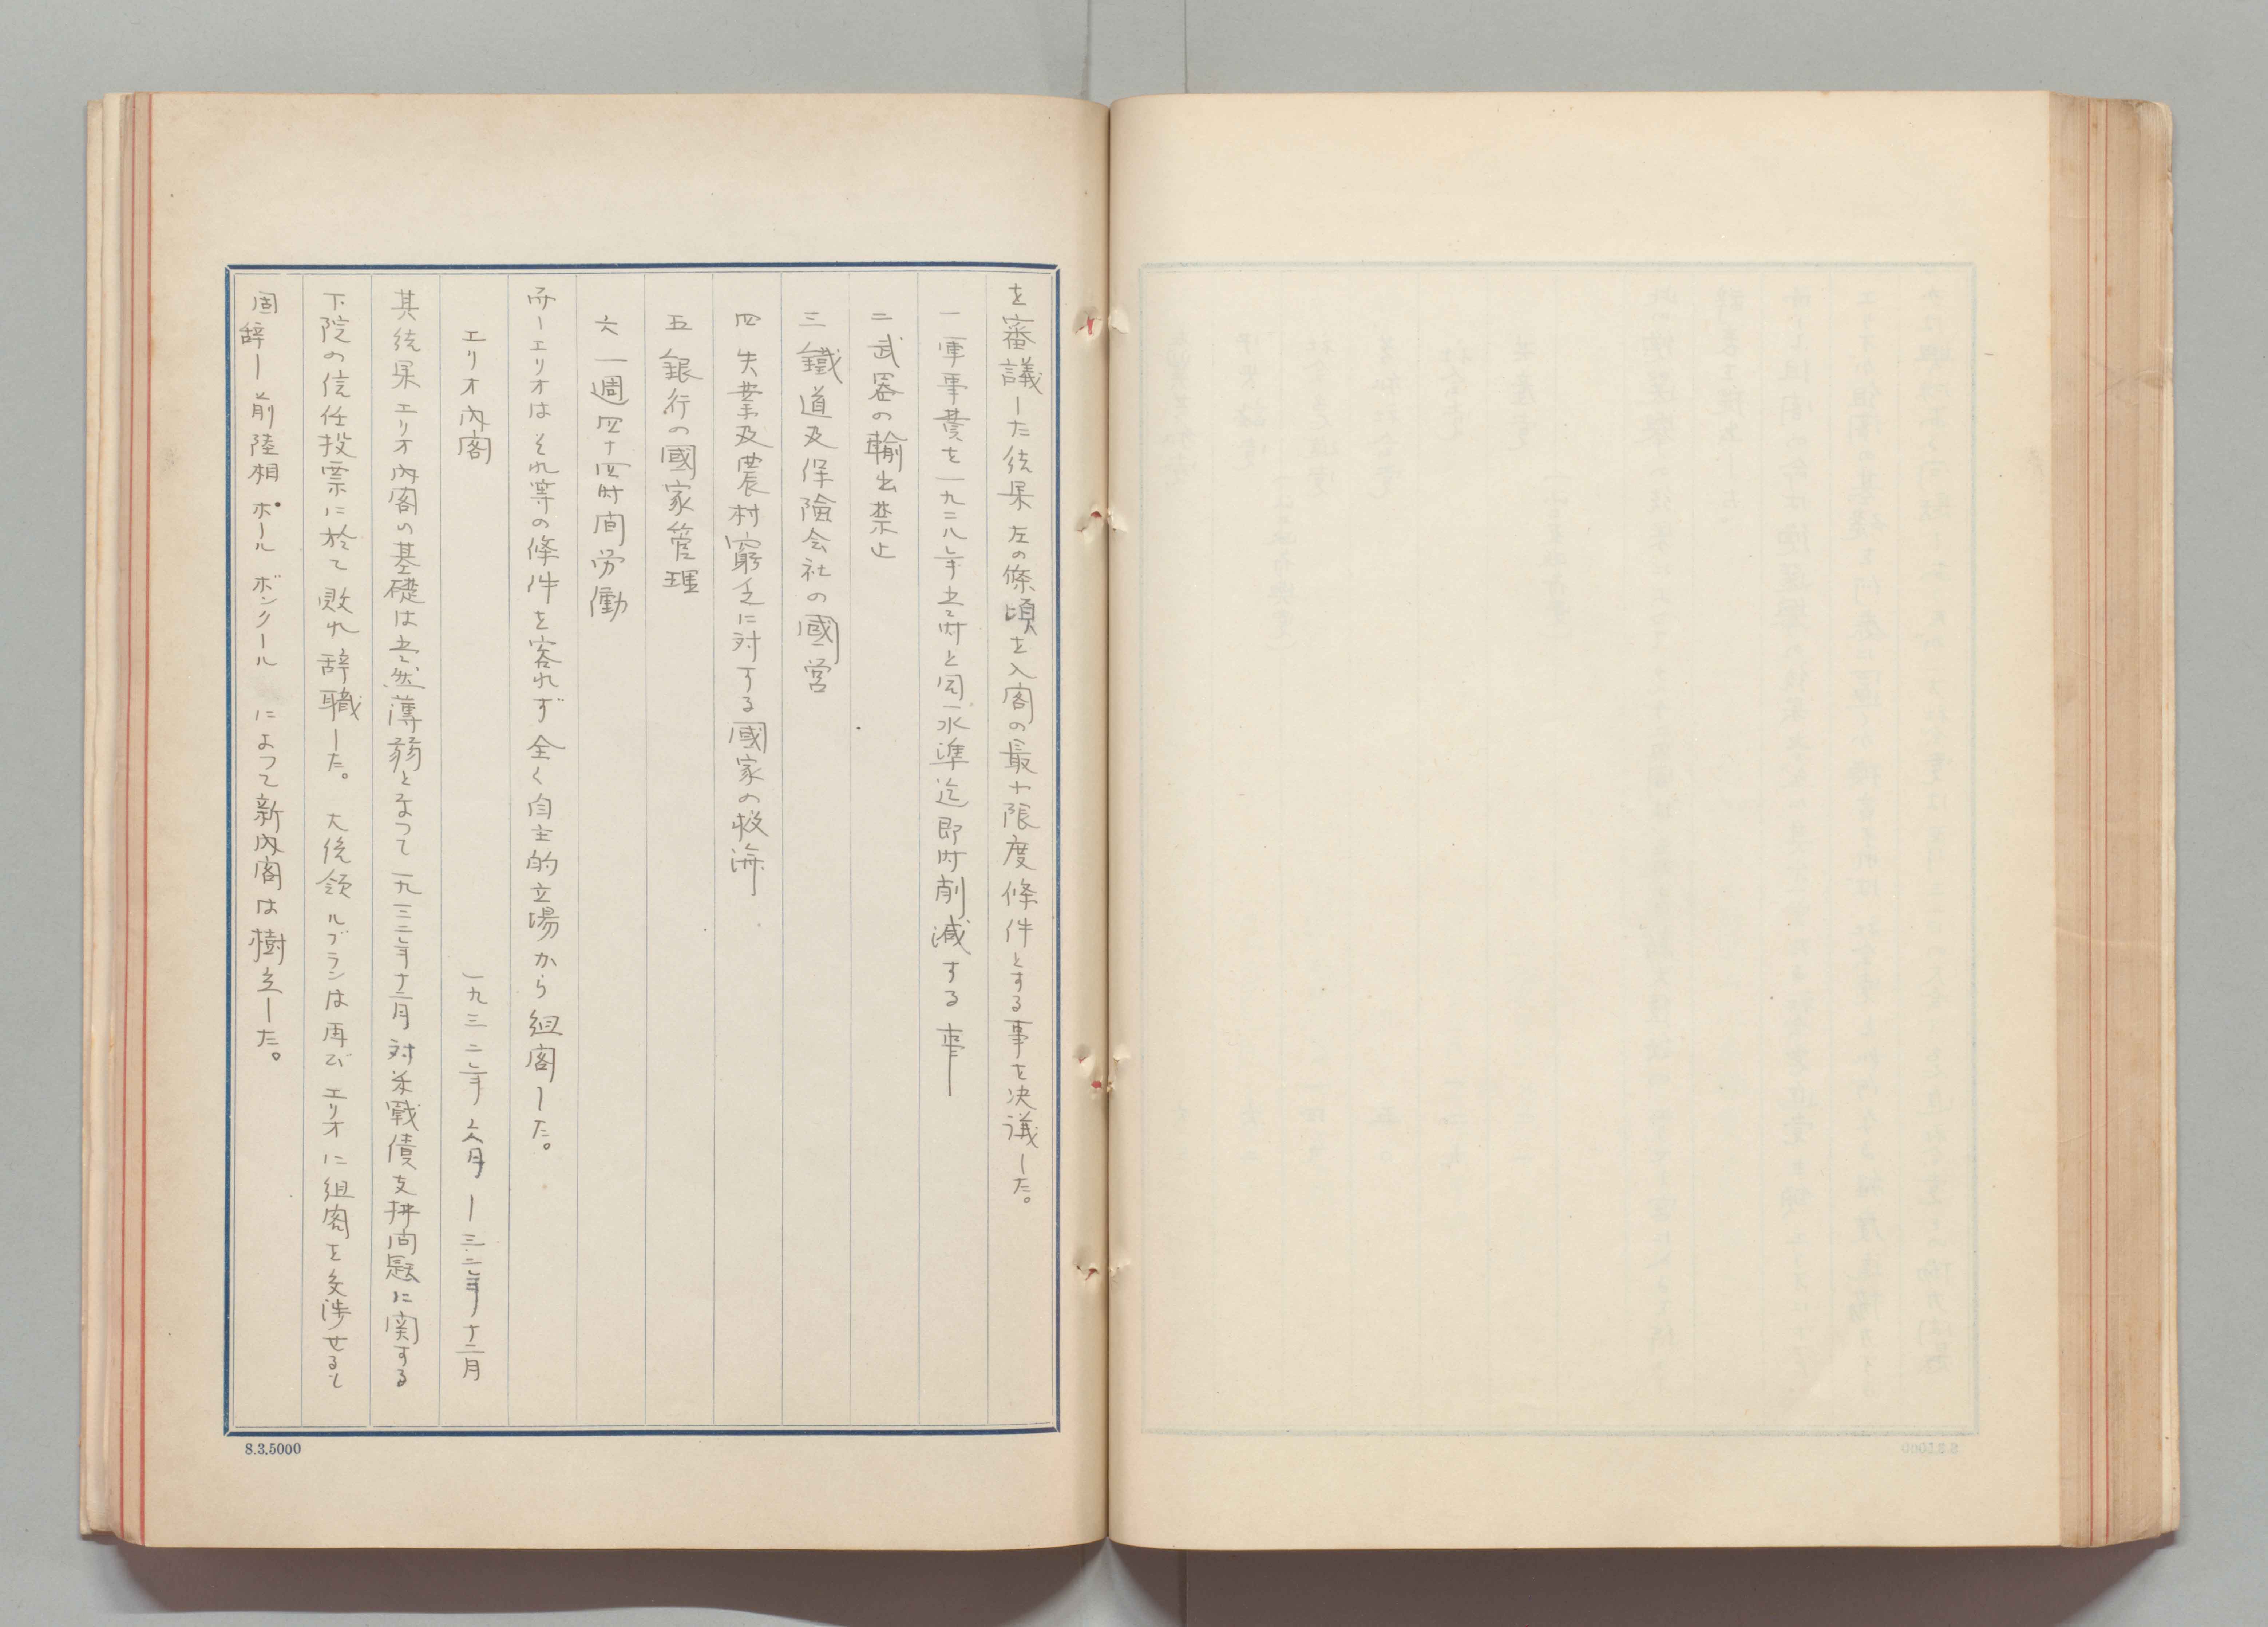 を審議した結果左の條項を入閣の最小限度條件とする事を決議した。
一 軍事費を一九二八年当時と同一水準迄即時削減する事
二 武器の輸出禁止
三 鐵道及保険会社の國営
四 失業及農村窮乏に対する國家の救済
五 銀行の國家管理
六 一週四十四時間労働
所しエリオはそれ等の條件を容れず全く自主的立場から組閣した。
エリオ内閣 一九三二年六月ー三二年十二月
其結果エリオ内閣の基礎は当然薄弱となつて一九三二年十二月対米戰債支拂问題に関する
下院の信任投票に於て敗れ辞職した。大統領ルブランは再びエリオに組閣を交渉せると
固辞し前陸相ポールボンクールによつて新内閣は樹立した。
8.3.5000